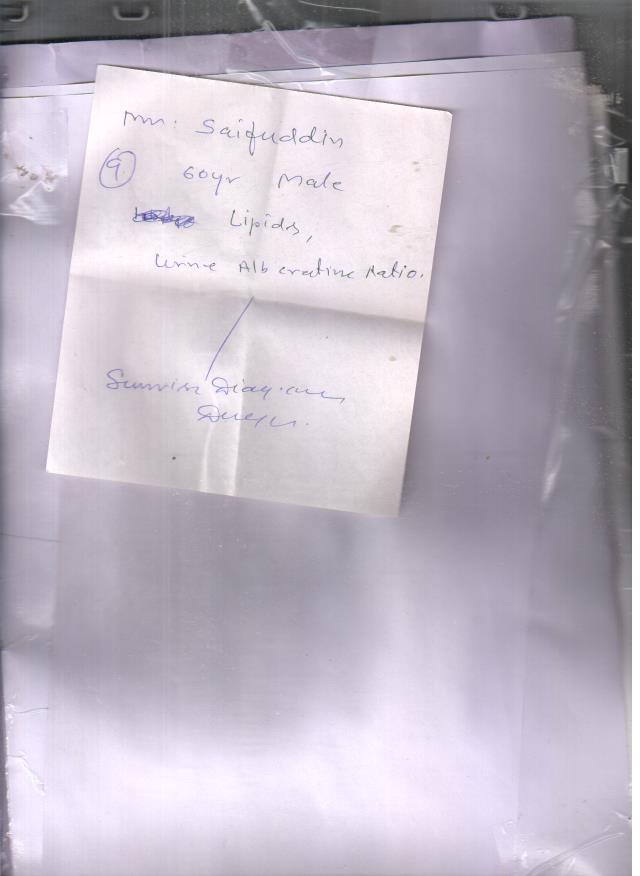 Mr. Saifuddin
9. 60yr Male
Lipids,
Urine Alb cratine Ratio.
Sunrise Diag